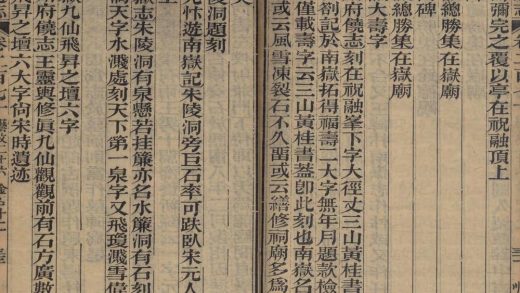 彌完之覆以亭在祝融頂上
總勝集在嶽廟
碑
總勝集在嶽廟
大壽字
府饒志刻在祝融峯下字大徑丈三山黃桂書
劄記於南嶽拓得福壽二大字無年月題款檢
僅載壽字云三山黃桂書蓋卽此刻也南嶽名
或云風雪凍裂石不久畱或云繕修祠廟多爲
陵洞題刻
遊南嶽記朱陵洞旁巨石率可趺臥宋元人
嶽志朱陵洞有泉懸若挂簾亦名水簾洞有石刻
文字水濺處刻天下第一泉字又飛瓊濺雪偉
嶽九仙飛昇之壇六字
府饒志王靈輿修眞九仙觀觀前有石方廣數
昇之壇六大字尙宋時遺迹
二百七十 藝文二十六 金石十二